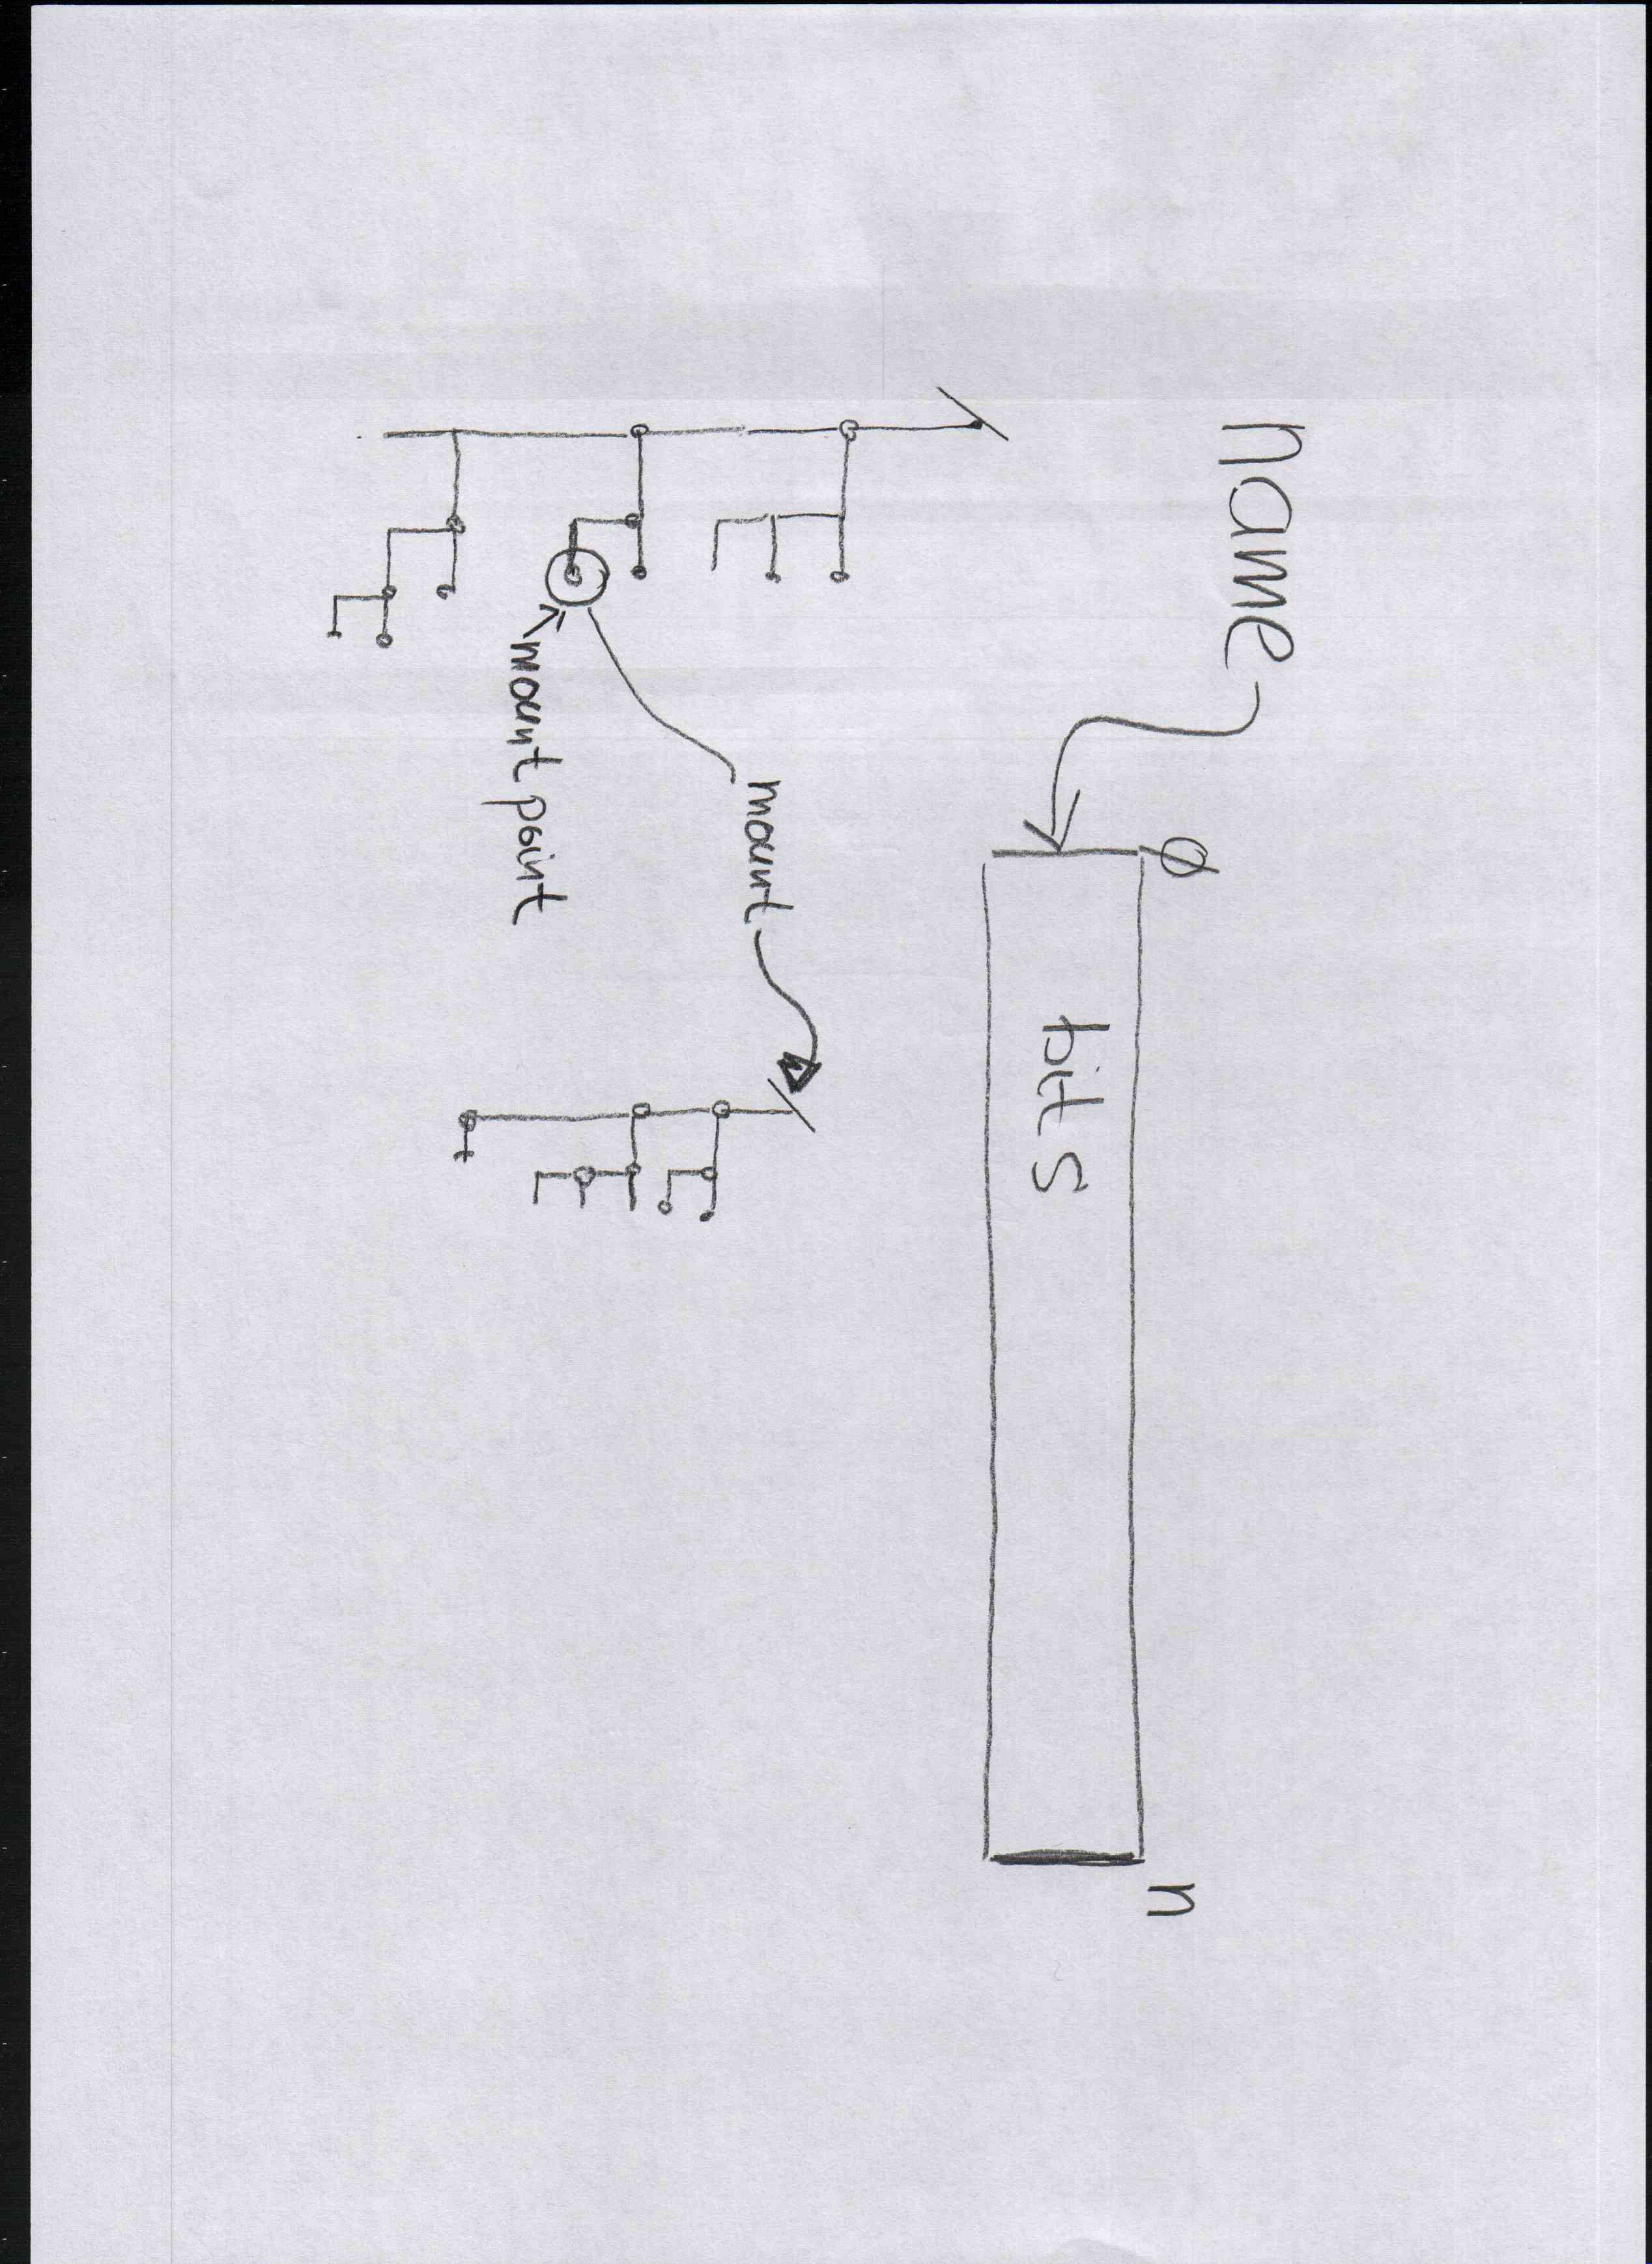 name
Ø
n
bits
/
mount
/
mount point